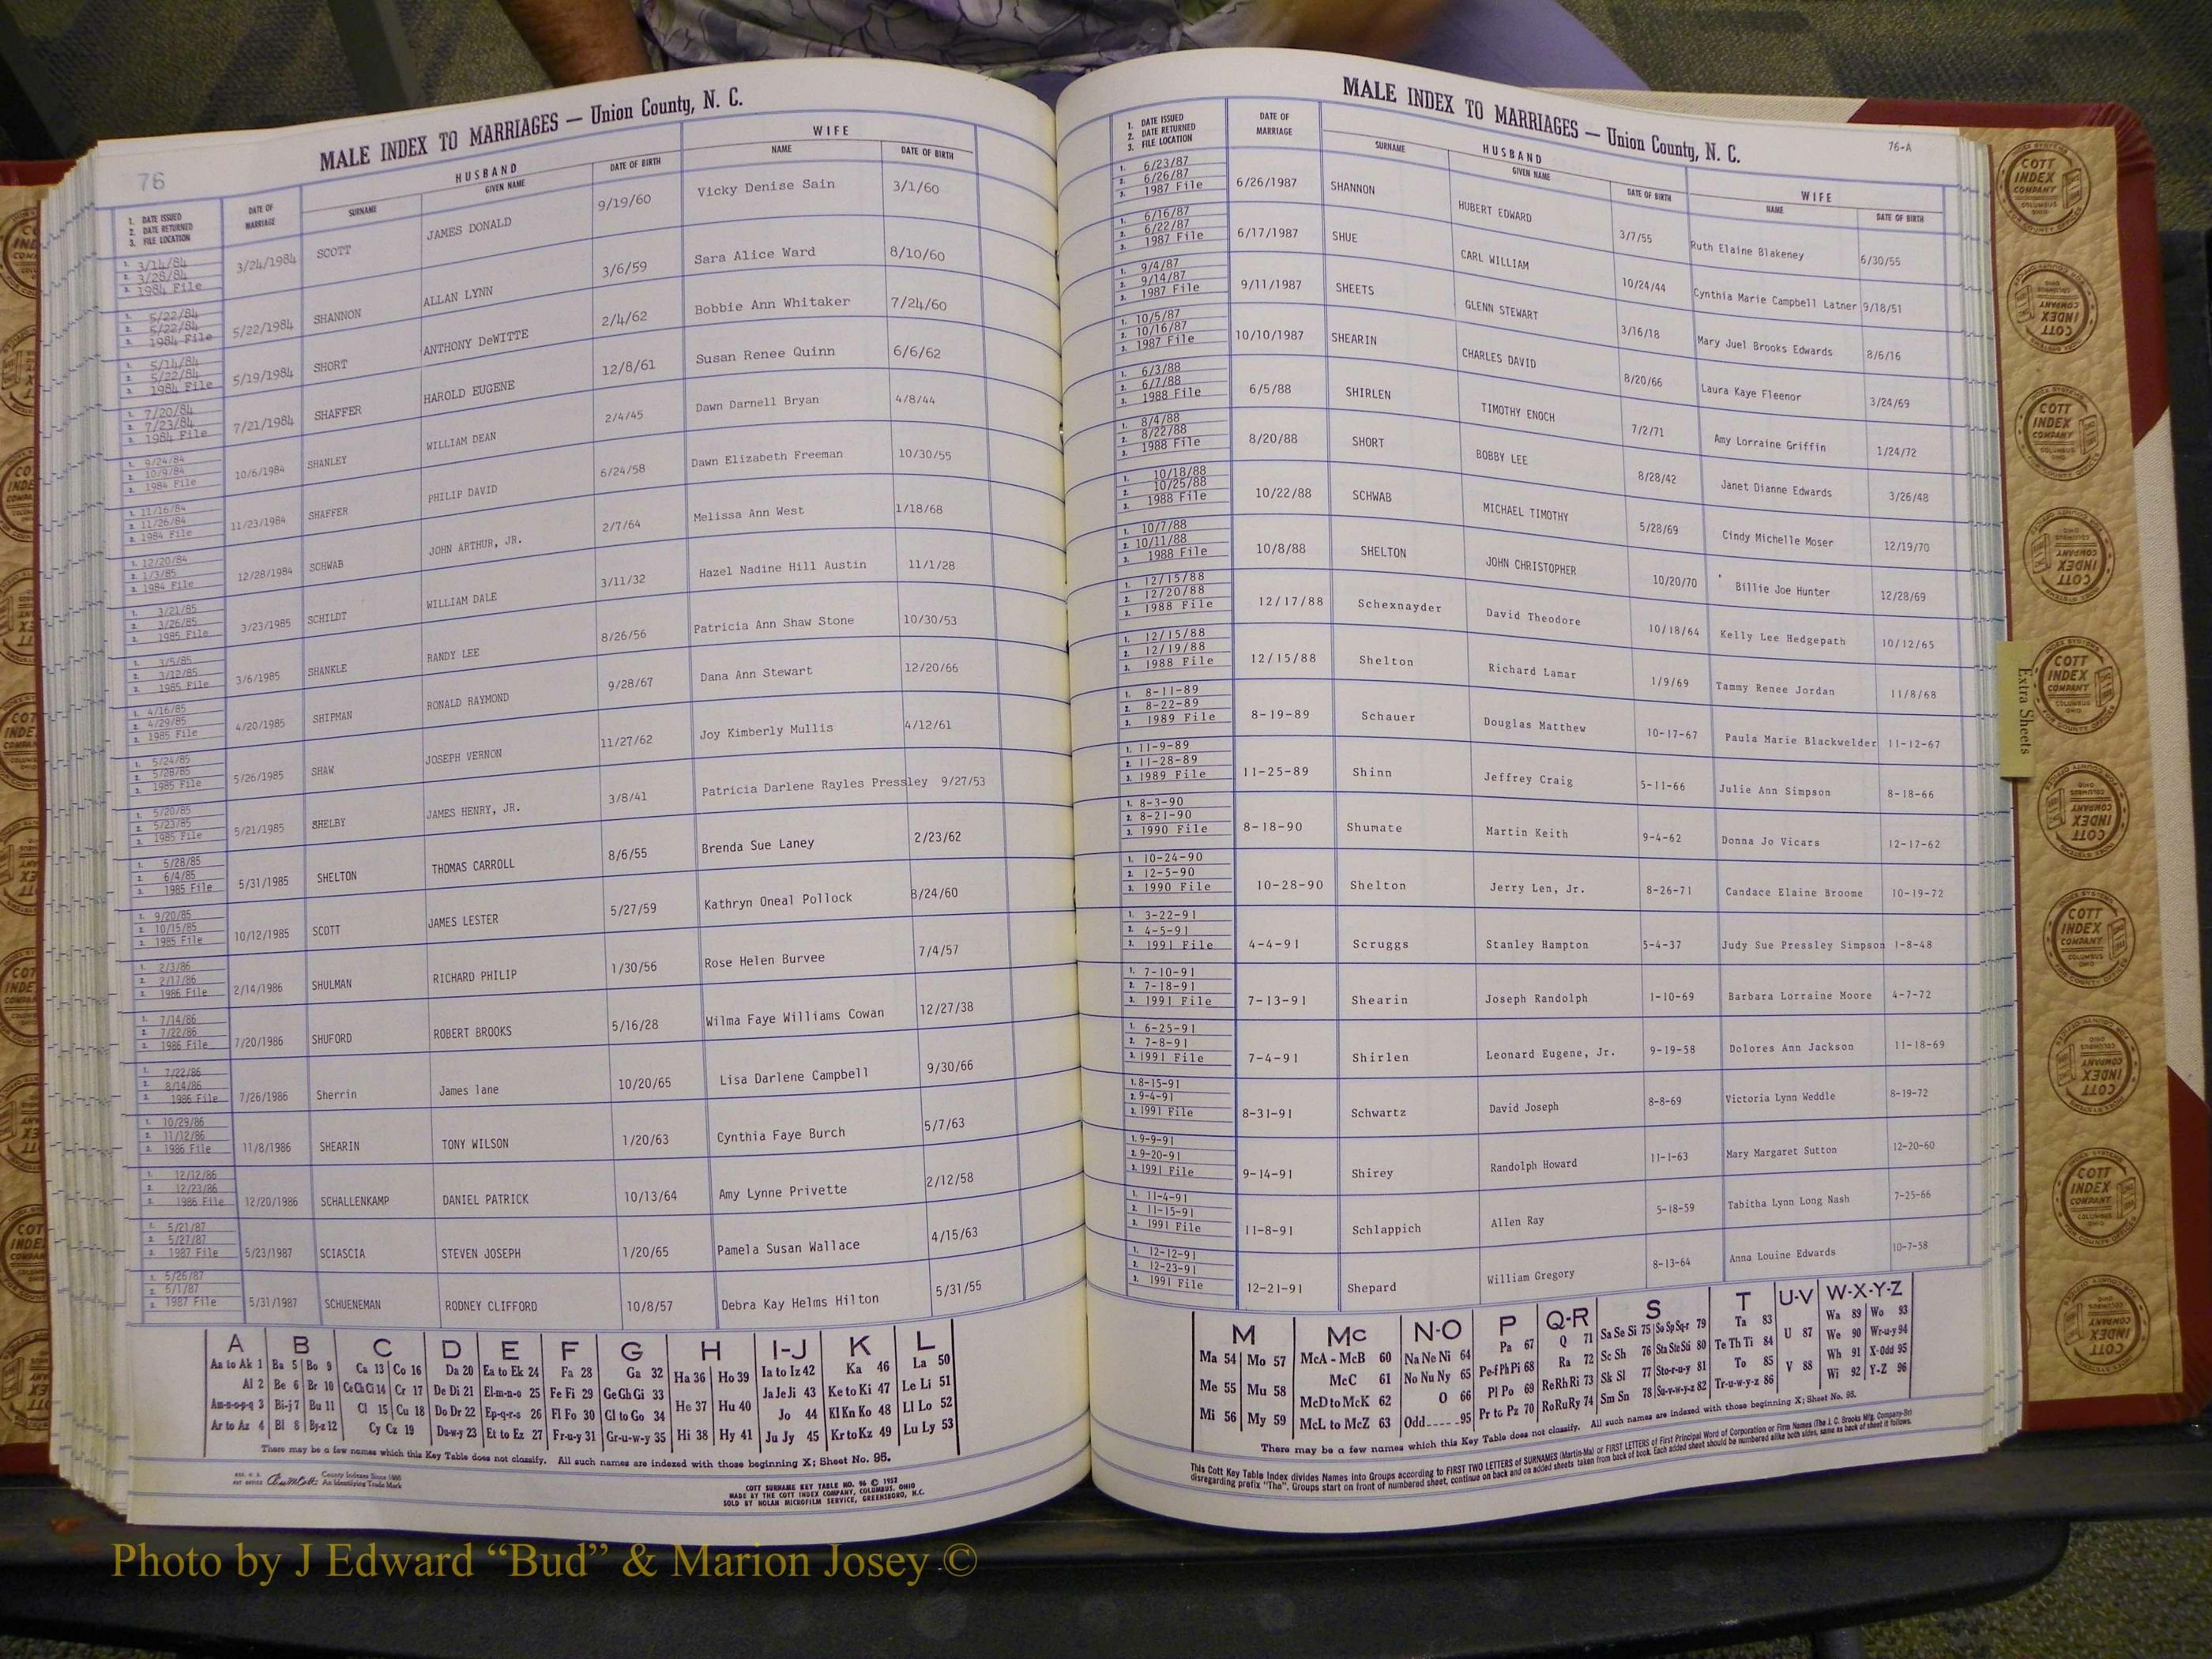 76
MALE INDEX TO MARRIAGES — Union County, N. C.
1. DATE ISSUED
2. DATE RETURNED
3. FILE LOCATION
DATE OF MARRIAGE
HUSBAND
SURNAME GIVEN NAME DATE OF BIRTH
WIFE
NAME DATE OF BIRTH
1. 3/14/84 2. 3/28/84 3. 1984 File 3/24/1984 SCOTT JAMES DONALD 9/19/60 Vicky Denise Sain 3/1/60
1. 5/22/84 2. 5/22/84 3. 1984 File 5/22/1984 SHANNON ALLAN LYNN 3/6/59 Sara Alice Ward 8/10/60
1. 5/14/84 2. 5/22/84 3. 1984 File 5/19/1984 SHORT ANTHONY DeWITTE 2/4/62 Bobbie Ann Whitaker 7/24/60
1. 7/20/84 2. 7/23/84 3. 1984 File 7/21/1984 SHAFFER HAROLD EUGENE 12/8/61 Susan Renee Quinn 6/6/62
1. 9/24/84 2. 10/9/84 3. 1984 File 10/6/1984 SHANLEY WILLIAM DEAN 2/4/45 Dawn Darnell Bryan 4/8/44
1. 11/16/84 2. 11/26/84 3. 1984 File 11/23/1984 SHAFFER PHILIP DAVID 6/24/58 Dawn Elizabeth Freeman 10/30/55
1. 12/20/84 2. 1/3/85 3. 1984 File 12/28/1984 SCHWAB JOHN ARTHUR, JR. 2/7/64 Melissa Ann West 1/18/68
1. 3/21/85 2. 3/26/85 3. 1985 File 3/23/1985 SCHILDT WILLIAM DALE 3/11/32 Hazel Nadine Hill Austin 11/1/28
1. 3/5/85 2. 3/12/85 3. 1985 File 3/6/1985 SHANKLE RANDY LEE 8/26/56 Patricia Ann Shaw Stone 10/30/53
1. 4/16/85 2. 4/29/85 3. 1985 File 4/20/1985 SHIPMAN RONALD RAYMOND 9/28/67 Dana Ann Stewart 12/20/66
1. 5/24/85 2. 5/28/85 3. 1985 File 5/26/1985 SHAW JOSEPH VERNON 11/27/62 Joy Kimberly Mullis 4/12/61
1. 5/20/85 2. 5/23/85 3. 1985 File 5/21/1985 SHELBY JAMES HENRY, JR. 3/8/41 Patricia Darlene Rayles Pressley 9/27/53
1. 5/28/85 2. 6/4/85 3. 1985 File 5/31/1985 SHELTON THOMAS CARROLL 8/6/55 Brenda Sue Laney 2/23/62
1. 9/20/85 2. 10/15/85 3. 1985 File 10/12/1985 SCOTT JAMES LESTER 5/27/59 Kathryn Oneal Pollock 8/24/60
1. 2/3/86 2. 2/17/86 3. 1986 File 2/14/1986 SHULMAN RICHARD PHILIP 1/30/56 Rose Helen Burvee 7/4/57
1. 7/14/86 2. 7/22/86 3. 1986 File 7/20/1986 SHUFORD ROBERT BROOKS 5/16/28 Wilma Faye Williams Cowan 12/27/38
1. 7/22/86 2. 8/14/86 3. 1986 File 7/26/1986 Sherrin James lane 10/20/65 Lisa Darlene Campbell 9/30/66
1. 10/29/86 2. 11/12/86 3. 1986 File 11/8/1986 SHEARIN TONY WILSON 1/20/63 Cynthia Faye Burch 5/7/63
1. 12/12/86 2. 12/23/86 3. 1986 File 12/20/1986 SCHALLENKAMP DANIEL PATRICK 10/13/64 Amy Lynne Privette 2/12/58
1. 5/21/87 2. 5/27/87 3. 1987 File 5/23/1987 SCIASCIA STEVEN JOSEPH 1/20/65 Pamela Susan Wallace 4/15/63
1. 5/26/87 2. 6/1/87 3. 1987 File 5/31/1987 SCHUENEMAN RODNEY CLIFFORD 10/8/57 Debra Kay Helms Hilton 5/31/55
A B C D E F G H I-J K L
Aa to Ak 1 Ba 5 Bo 9 Ca 13 Co 16 Da 20 Ea to Ek 24 Fa 28 Ga 32 Ha 36 Ho 39 Ia to Iz 42 Ka 46 La 50
Al 2 Be 6 Br 10 Ce Ch Ci 14 Cr 17 De Di 21 El-m-n-o 25 Fe Fi 29 Ge Gh Gi 33 He 37 Hu 40 Ja Je Ji 43 Ke to Ki 47 Le Li 51
Am-n-o-p-q 3 Bi-j 7 Bu 11 Cl 15 Cu 18 Do Dr 22 Ep-q-r-s 26 Fl Fo 30 Gl to Go 34 Jo 44 Kl Kn Ko 48 Ll Lo 52
Ar to Az 4 Bl 8 By-z 12 Cy Cz 19 Du-w-y 23 Et to Ez 27 Fr-u-y 31 Gr-u-w-y 35 Hi 38 Hy 41 Ju Jy 45 Kr to Kz 49 Lu Ly 53
There may be a few names which this Key Table does not classify. All such names are indexed with those beginning X; Sheet No. 95.
County Indexes Since 1888
An Identifying Trade Mark
COTT SURNAME KEY TABLE NO. 96 © 1957
MADE BY THE COTT INDEX COMPANY, COLUMBUS, OHIO
SOLD BY NOLAN MICROFILM SERVICE, GREENSBORO, N.C.
MALE INDEX TO MARRIAGES — Union County, N. C.
76-A
1. DATE ISSUED
2. DATE RETURNED
3. FILE LOCATION
DATE OF MARRIAGE
HUSBAND
SURNAME GIVEN NAME DATE OF BIRTH
WIFE
NAME DATE OF BIRTH
1. 6/23/87 2. 6/26/87 3. 1987 File 6/26/1987 SHANNON HUBERT EDWARD 3/7/55 Ruth Elaine Blakeney 6/30/55
1. 6/16/87 2. 6/22/87 3. 1987 File 6/17/1987 SHUE CARL WILLIAM 10/24/44 Cynthia Marie Campbell Latner 9/18/51
1. 9/4/87 2. 9/14/87 3. 1987 File 9/11/1987 SHEETS GLENN STEWART 3/16/18 Mary Juel Brooks Edwards 8/6/16
1. 10/5/87 2. 10/16/87 3. 1987 File 10/10/1987 SHEARIN CHARLES DAVID 8/20/66 Laura Kaye Fleenor 3/24/69
1. 6/3/88 2. 6/7/88 3. 1988 File 6/5/88 SHIRLEN TIMOTHY ENOCH 7/2/71 Amy Lorraine Griffin 1/24/72
1. 8/4/88 2. 8/22/88 3. 1988 File 8/20/88 SHORT BOBBY LEE 8/28/42 Janet Dianne Edwards 3/26/48
10/18/88 2. 10/25/88 3. 1988 File 10/22/88 SCHWAB MICHAEL TIMOTHY 5/28/69 Cindy Michelle Moser 12/19/70
1. 10/7/88 2. 10/11/88 3. 1988 File 10/8/88 SHELTON JOHN CHRISTOPHER 10/20/70 Billie Joe Hunter 12/28/69
1. 12/15/88 2. 12/20/88 3. 1988 File 12/17/88 Schexnayder David Theodore 10/18/64 Kelly Lee Hedgepath 10/12/65
1. 12/15/88 2. 12/19/88 3. 1988 File 12/15/88 Shelton Richard Lamar 1/9/69 Tammy Renee Jordan 11/8/68
1. 8-11-89 2. 8-22-89 3. 1989 File 8-19-89 Schauer Douglas Matthew 10-17-67 Paula Marie Blackwelder 11-12-67
1. 11-9-89 2. 11-28-89 3. 1989 File 11-25-89 Shinn Jeffrey Craig 5-11-66 Julie Ann Simpson 8-18-66
1. 8-3-90 2. 8-21-90 3. 1990 File 8-18-90 Shumate Martin Keith 9-4-62 Donna Jo Vicars 12-17-62
1. 10-24-90 2. 12-5-90 3. 1990 File 10-28-90 Shelton Jerry Len, Jr. 8-26-71 Candace Elaine Broome 10-19-72
1. 3-22-91 2. 4-5-91 3. 1991 File 4-4-91 Scruggs Stanley Hampton 5-4-37 Judy Sue Pressley Simpson 1-8-48
1. 7-10-91 2. 7-18-91 3. 1991 File 7-13-91 Shearin Joseph Randolph 1-10-69 Barbara Lorraine Moore 4-7-72
1. 6-25-91 2. 7-8-91 3. 1991 File 7-4-91 Shirlen Leonard Eugene, Jr. 9-19-58 Dolores Ann Jackson 11-18-69
1. 8-15-91 2. 9-4-91 3. 1991 File 8-31-91 Schwartz David Joseph 8-8-69 Victoria Lynn Weddle 8-19-72
1. 9-9-91 2. 9-20-91 3. 1991 File 9-14-91 Shirey Randolph Howard 11-1-63 Mary Margaret Sutton 12-20-60
1. 11-4-91 2. 11-15-91 3. 1991 File 11-8-91 Schlappich Allen Ray 5-18-59 Tabitha Lynn Long Nash 7-25-66
1. 12-12-91 2. 12-23-91 3. 1991 File 12-21-91 Shepard William Gregory 8-13-64 Anna Louine Edwards 10-7-58
M Mc N-O P Q-R S T U-V W-X-Y-Z
Ma 54 Mo 57 McA - McB 60 Na Ne Ni 64 Pa 67 Q 71 Sa Se Si 75 So Sp Sq-r 79 Ta 83 U 87 Wa 89 Wo 93
Me 55 Mu 58 McC 61 No Nu Ny 65 Pe-f Ph Pi 68 Ra 72 Sc Sh 76 Sta Ste Sti 80 Te Th Ti 84 We 90 Wr-u-y 94
McD to McK 62 O 66 Pl Po 69 Re Rh Ri 73 Sk Sl 77 Sto-r-u-y 81 To 85 V 88 Wh 91 X-Odd 95
Mi 56 My 59 McL to McZ 63 Odd-----95 Pr to Pz 70 Ro Ru Ry 74 Sm Sn 78 Su-v-w-y-z 82 Tr-u-w-y-z 86 Wi 92 Y-Z 96
There may be a few names which this Key Table does not classify. All such names are indexed with those beginning X; Sheet No. 95.
This Cott Key Table Index divides Names into Groups according to FIRST TWO LETTERS of SURNAMES (Martin-Ma) or FIRST LETTERS of First Principal Word of Corporation or Firm Names (The J. C. Brooks Mfg. Company-Br)
disregarding prefix "The". Groups start on front of numbered sheet, continue on back and on added sheets taken from back of book. Each added sheet should be numbered alike both sides, same as back of sheet it follows.
Extra Sheets
COTT INDEX COMPANY COLUMBUS OHIO
Photo by J Edward “Bud” & Marion Josey ©